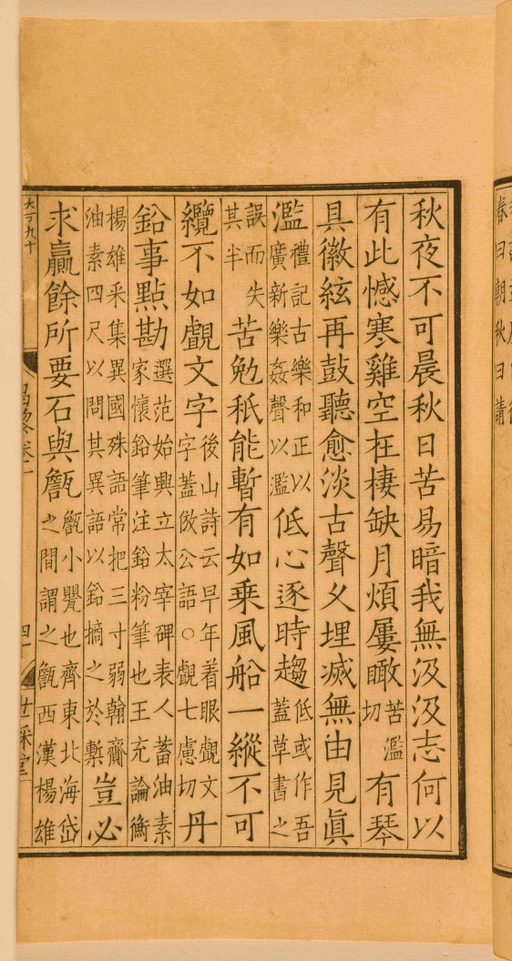 秋夜不可晨秋日苦易暗我無汲汲志何以
有此憾寒雞空在棲缺月煩屢瞰苦濫切有琴
具徽絃再鼓聽愈淡古聲久埋滅無由見眞
濫禮記古樂和正以廣新樂姦聲以濫低心逐時趨低或作吾蓋草書之
誤而失其半苦勉秖能暫有如乘風船一縱不可
纜不如覷文字後山詩云早年着眼覷文字蓋倣公語○覷七慮切丹
鉛事點勘選范始興立太宰碑表人蓄油素家懷鉛筆注鉛粉筆也王充論衡
楊雄采集異國殊語常把三寸弱翰齎油素四尺以問其異語以鉛摘之於槧豈必
求贏餘所要石與甔甔小甖也齊東北海岱之間謂之甔西漢楊雄